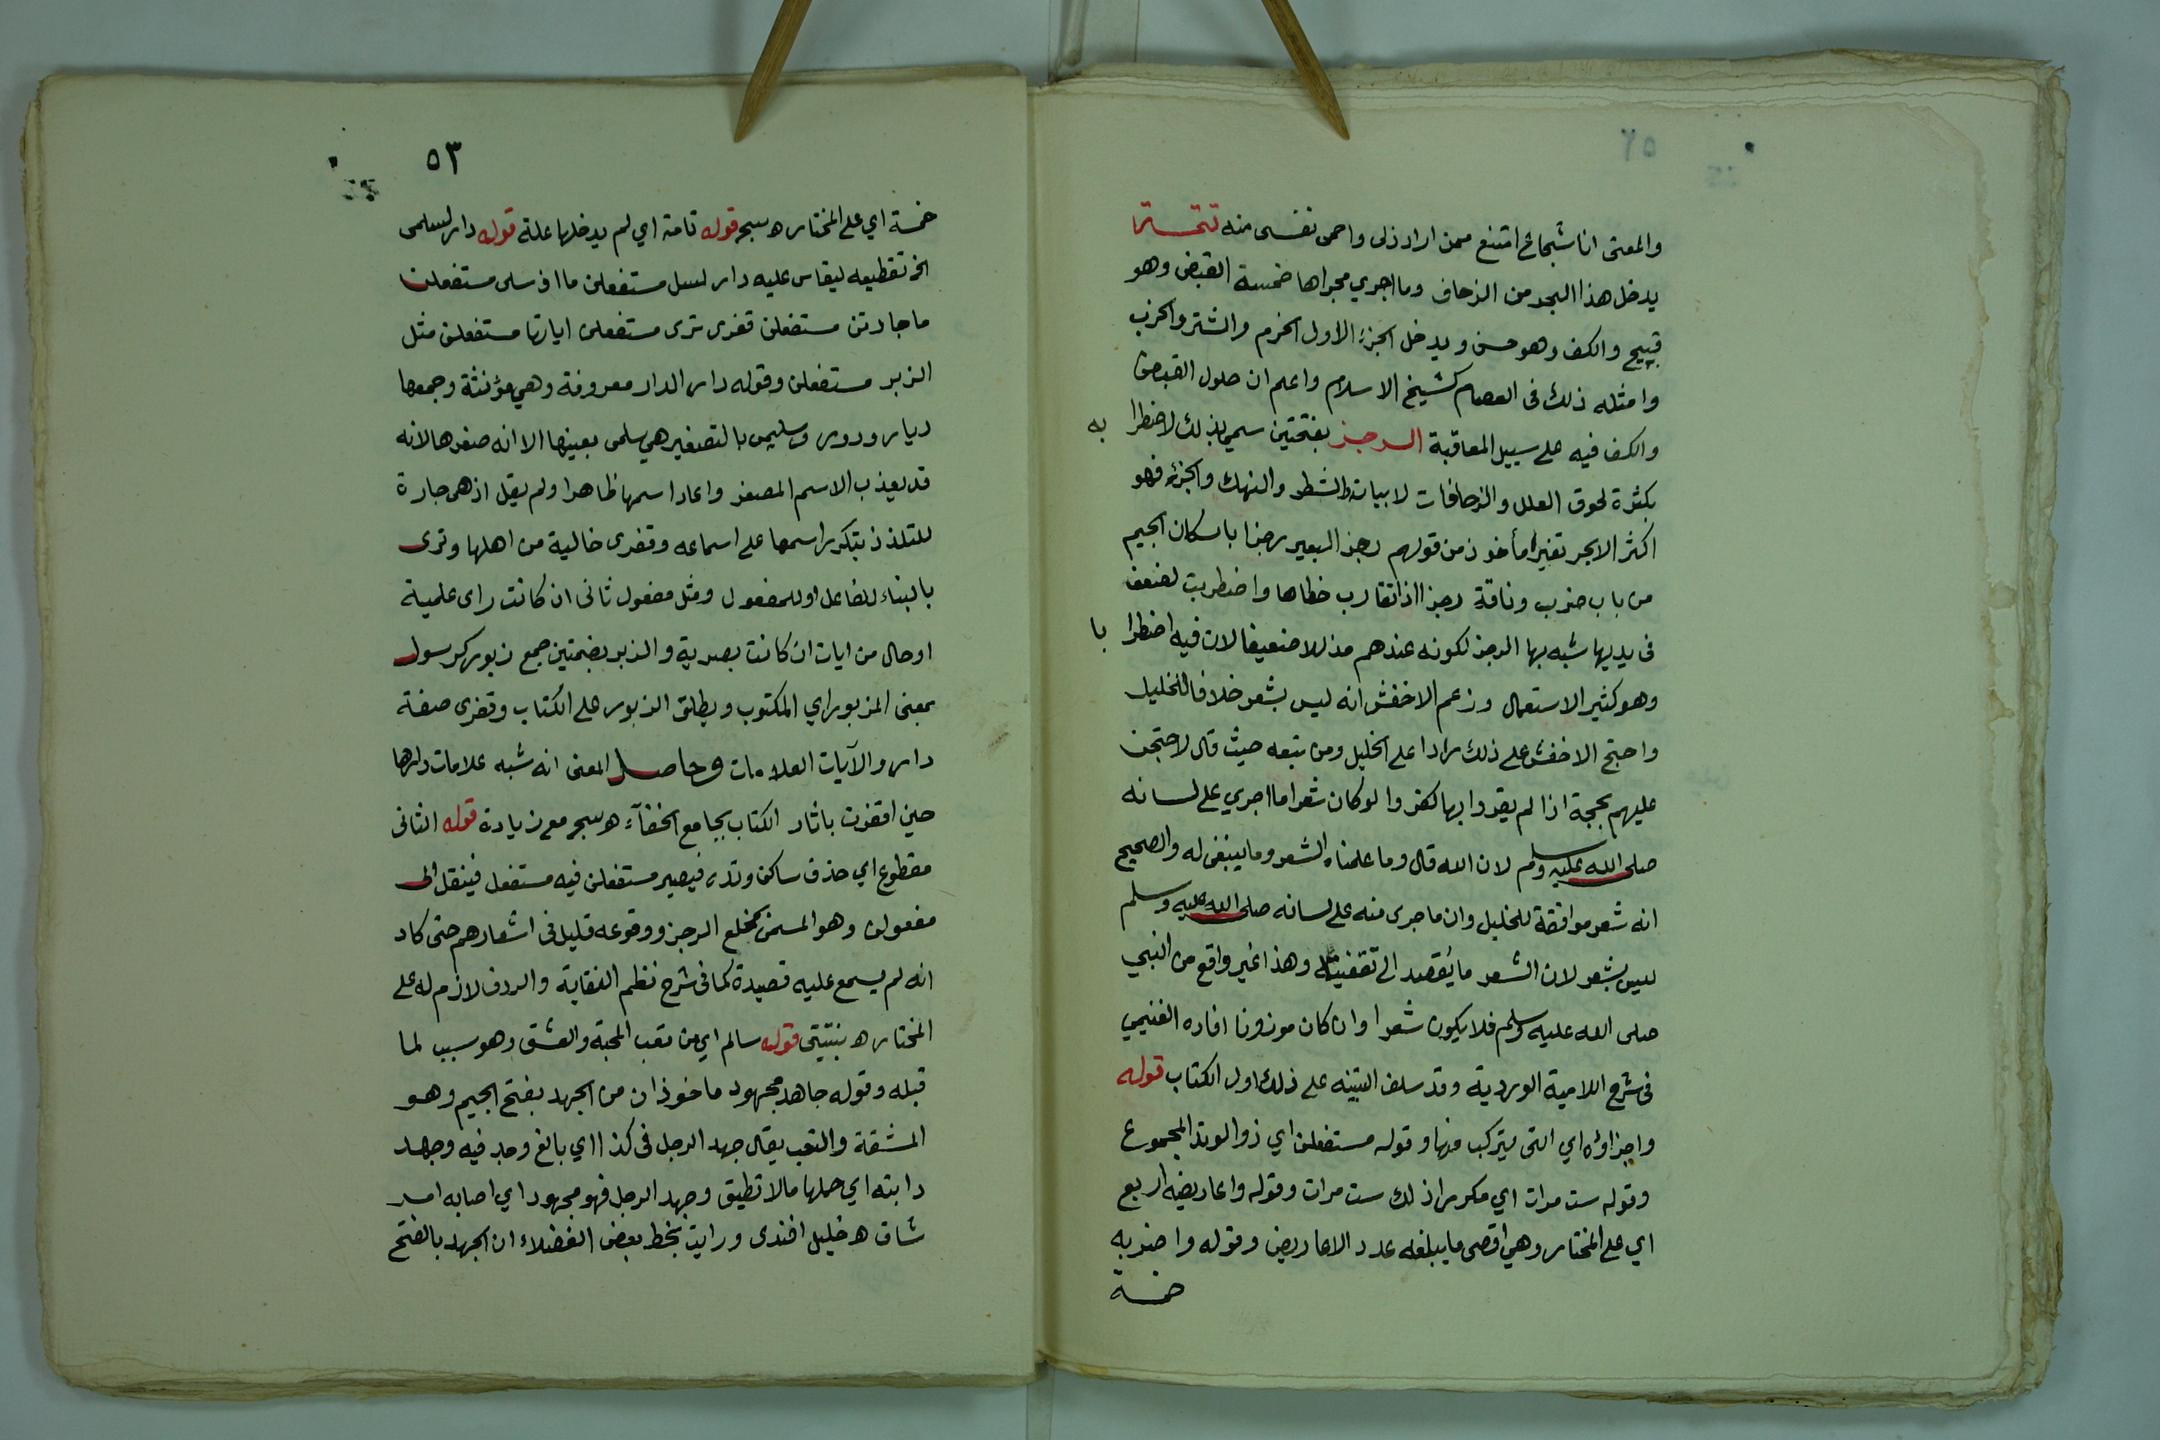 والمعنى انا شجاع امتنع ممن اراد ذلى واحمى نفسى منه تتمــة
يدخل هذا البحر من الزحاف وما اجري مجراها خمسة القبض وهو
قبيح والكف وهو حسن ويدخل الجزء الاول الخرم والشتر والخرب
وامثله ذلك فى العصام كشيخ الاسلام واعلم ان حلول القبض
والكف فيه على سبيل المعاقبة الرجز بفتحتين سمي بذلك لاضطرا به
بكثرة لحوق العلل والزحافات لابياته الشطر والنهك والجزء فهو
اكثر الابحر تغيرا مأخوذ من قولهم رجز البعير رجزا باسكان الجيم
من باب ضرب وناقة رجزا اذا تقارب خطاها واضطربت لضعف
فى يديها شبه بها الرجز لكونه عندهم مذللا ضعيفا لان فيه اضطرا با
وهو كثير الاستعمال وزعم الاخفش انه ليس بشعر خلافا للخليل
واحتج الاخفش على ذلك رادا على الخليل ومن تبعه حيث قال لاحتجن
عليهم بحجة اذا لم يقروا بها كفروا لو كان شعرا ما اجري على لسانه
صلى الله عليه وسلم لان الله قال وما علمناه الشعر وما ينبغى له والصحيح
انه شعر موافقة للخليل وان ما جرى منه على لسانه صلى الله عليه وسلم
ليس بشعر لان الشعر ما يقصد الى تقفيته وهذا غير واقع من النبي
صلى الله عليه وسلم فلا يكون شعرا وان كان موزونا افاده الغنيمي
فى شرح اللامية الوردية وقد سلف التنبيه على ذلك اول الكتاب قوله
واجزاؤه اي التى يتركب منها وقوله مستفعلن اي ذو الوتد المجموع
وقوله ست مرات اي مكررا ذلك ست مرات وقوله واعاريضه اربع
اي على المختار وهي اقصى ما يبلغه عدد الاعاريض وقوله واضربه
خمسة
٥٣
خمسة اي على المختار ه سجر قوله تامة اي لم يدخلها علة قوله دار لسلمى
الخ تقطيعه ليقاس عليه دار لسل مستفعلن ما اذ سلى مستفعلن
ما جارتن مستفعلن قفرى ترى مستفعلن اياتها مستفعلن مثل
الزبر مستفعلن وقوله دار الدار معروفة وهي مؤنثة وجمعها
ديار ودور وسليمى بالتصغير هي سلمى بعينها الا انه صغرها لانه
قد يعذب الاسم المصغر واعاد اسمها ظاهرا ولم يقل اذ هى جارة
للتلذذ بتكرير اسمها على اسماعه وقفرى خالية من اهلها وترى
بالبناء للفاعل او للمفعول ومثل مفعول ثانى ان كانت راى علمية
او حال من ايات ان كانت بصرية والزبر بضمتين جمع زبور كرسول
بمعنى المزبور اي المكتوب ويطلق الزبور على الكتاب وقفرى صفة
دار والآيات العلامات وحاصل المعنى انه شبه علامات دارها
حين اقفرت باثار الكتاب بجامع الخفآء ه سجر مع زيادة قوله الثانى
مقطوع اي حذف ساكن وتده فيصير مستفعلن فيه مستفعل فينقل الى
مفعولن وهو المسمى بمخلع الرجز ووقوعه قليل فى اشعارهم حتى كاد
انه لم يسمع عليه قصيدة كما فى شرح نظم النقاية والردف لازم له على
المختار ه بنتيتى قوله سالم اي من تعب المحبة والعشق وهو سبب لما
قبله وقوله جاهد مجهود ماخوذان من الجهد بفتح الجيم وهو
المشقة والتعب يقال جهد الرجل فى كذا اي بالغ وجد فيه وجهد
دابته اي حملها مالا تطيق وجهد الرجل فهو مجهود اي اصابه امر
شاق ه خليل افندى ورايت بخط بعض الفضلاء ان الجهد بالفتح